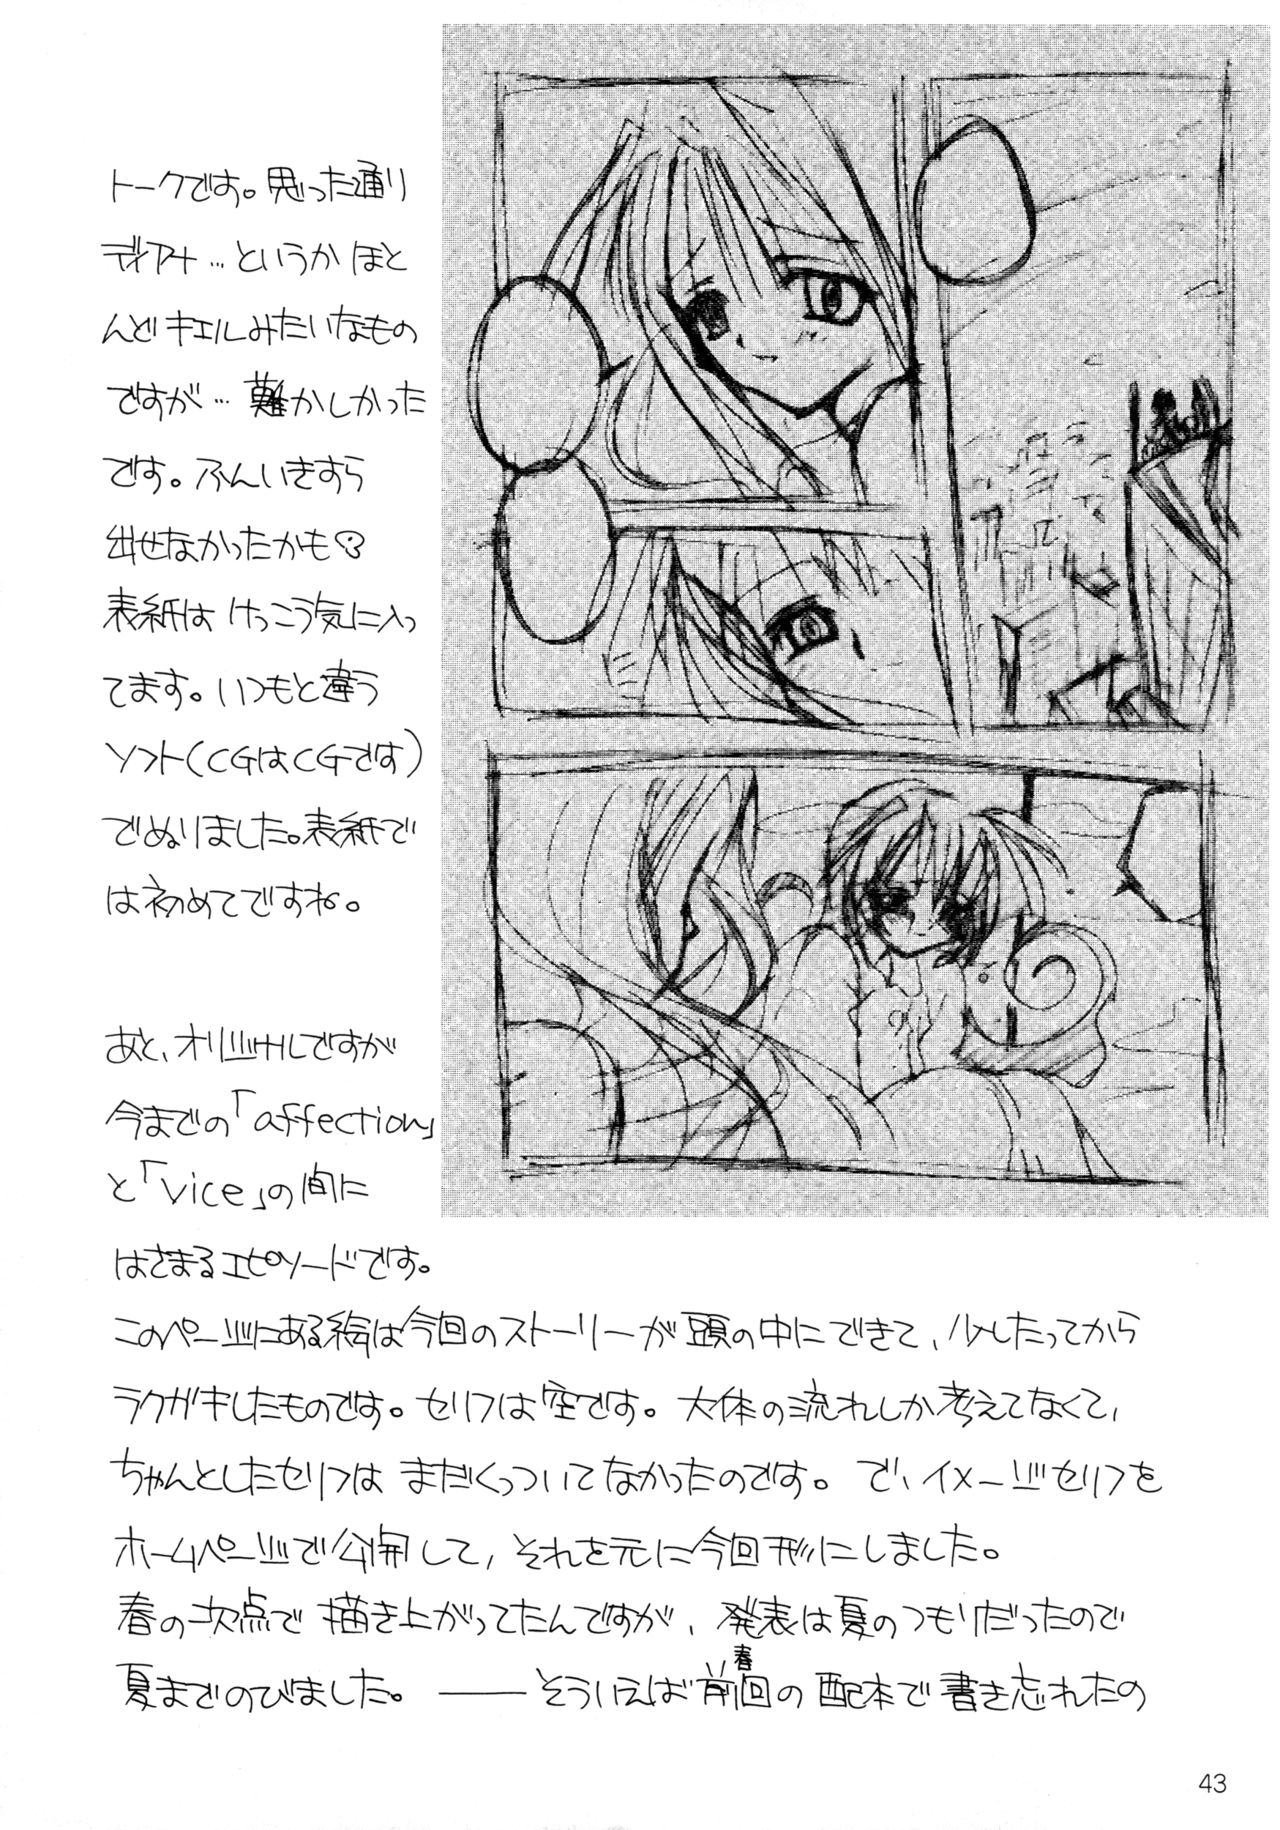 トークです。思った通り
ディアナ…というかほと
んどキエルみたいなもの
ですが…難かしかった
です。ふんいきすら
出せなかったかも
表紙はけっこう気に入っ
てます。いつもと違う
ソフト(CGはCGです)
でぬりました。表紙で
は初めてですね。
あと、オリジナルですが
今までの「affection」
と「vice」の間に
はさまるエピソードです。
このページにある絵は今回のストーリーが頭の中にできて、少したってから
ラクガキしたものです。セリフは空です。大体の流れしか考えてなくて、
ちゃんとしたセリフはまだくっついてなかったのです。で、イメージセリフを
ホームページで公開して、それを元に今回形にしました。
春の次点で描き上がってたんですが、発表は夏のつもりだったので
夏までのびました。――そういえば前回の配本で書き忘れたの
春
43